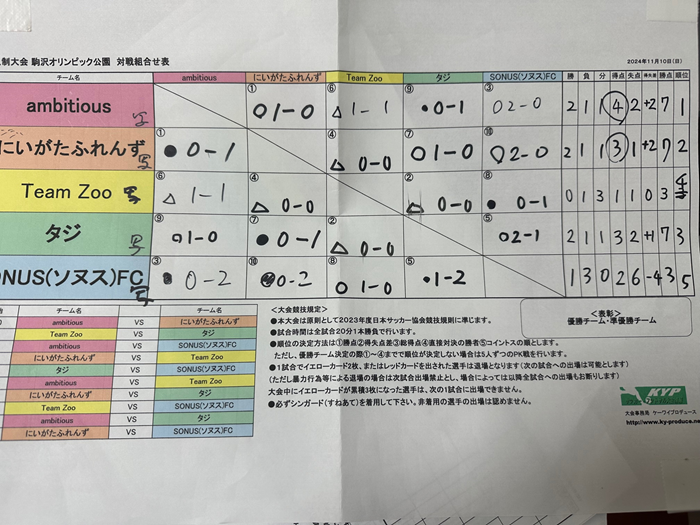 制大会 駒沢オリンピック公園 対戦組合せ表 2024年11月10日(日)
チーム名 ambitious にいがたふれんず Team Zoo タジ SONUS(ソヌス)FC 勝 負 分 得点 失点 得失差 勝点 順位
ambitious 写 ① ○1-0 ⑥ △1-1 ⑨ ●0-1 ③ ○2-0 2 1 1 ④ 2 +2 7 1
にいがたふれんず 写 ① ●0-1 ④ △0-0 ⑦ ○1-0 ⑩ ○2-0 2 1 1 ③ 1 +2 7 2
Team Zoo 写 ⑥ △1-1 ④ △0-0 ② △0-0 ⑧ ●0-1 0 1 3 1 1 0 3
タジ 写 ⑨ ○1-0 ⑦ ●0-1 ② △0-0 ⑤ ○2-1 2 1 1 3 2 +1 7 3
ONUS(ソヌス)FC 写 ③ ●0-2 ⑩ ●0-2 ⑧ ○1-0 ⑤ ●1-2 1 3 0 2 6 -4 3 5
チーム名 VS チーム名
ambitious VS にいがたふれんず
Team Zoo VS タジ
ambitious VS SONUS(ソヌス)FC
にいがたふれんず VS Team Zoo
タジ VS SONUS(ソヌス)FC
ambitious VS Team Zoo
にいがたふれんず VS タジ
Team Zoo VS SONUS(ソヌス)FC
ambitious VS タジ
にいがたふれんず VS SONUS(ソヌス)FC
<大会競技規定>
●本大会は原則として2023年度日本サッカー協会競技規則に準じます。
●試合時間は全試合20分1本勝負で行います。
●順位の決定方法は①勝点②得失点差③総得点④直接対決の勝者⑤コイントスの順とします。
ただし、優勝チーム決定の際①~④までで順位が決定しない場合は5人ずつのPK戦を行います。
●1試合でイエローカード2枚、またはレッドカードを出された選手は退場となります(次の試合への出場は可能とします)
(ただし暴力行為等による退場の場合は次試合出場禁止とし、場合によっては以降全試合への出場もお断りします)
大会中にイエローカードが累積3枚になった選手は、次の1試合に出場できません。
●必ずシンガード(すねあて)を着用して下さい。非着用の選手の出場は認めません。
<表彰>
優勝チーム・準優勝チーム
KYP
大会事務局 ケーワイプロデュース
http://www.ky-produce.ne